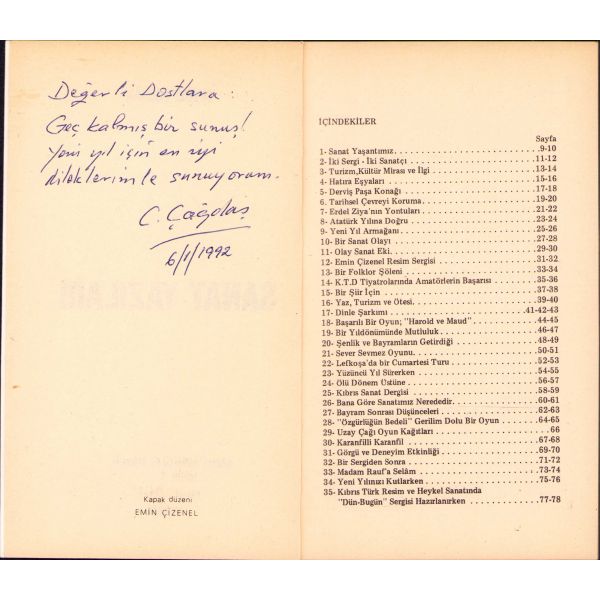 Değerli Dostlara :
Geç kalmış bir sunuş!
Yeni yıl için en iyi
dileklerimle sunuyorum.
C. Çağdaş
6/1/1992
Kapak düzeni
EMİN ÇİZENEL
İÇİNDEKİLER
Sayfa
1- Sanat Yaşantımız .9-10
2- İki Sergi - İki Sanatçı 11-12
3- Turizm,Kültür Mirası ve İlgi 13-14
4- Hatıra Eşyaları 15-16
5- Derviş Paşa Konağı 17-18
6- Tarihsel Çevreyi Koruma 19-20
7- Erdel Ziya'nın Yontuları 21-22
8- Atatürk Yılına Doğru 23-24
9- Yeni Yıl Armağanı 25-26
10- Bir Sanat Olayı 27-28
11- Olay Sanat Eki. 29-30
12- Emin Çizenel Resim Sergisi 31-32
13- Bir Folklor Şöleni 33-34
14- K.T.D Tiyatrolarında Amatörlerin Başarısı 35-36
15- Bir Şiir İçin 37-38
16- Yaz, Turizm ve Ötesi. 39-40
17- Dinle Şarkımı 41-42-43
18- Başarılı Bir Oyun; "Harold ve Maud" 44-45
19- Bir Yıldönümünde Mutluluk 46-47
20- Şenlik ve Bayramların Getirdiği 48-49
21- Sever Sevmez Oyunu. 50-51
22- Lefkoşa'da bir Cumartesi Turu 52-53
23- Yüzüncü Yıl Sürerken 54-55
24- Ölü Dönem Üstüne 56-57
25- Kıbrıs Sanat Dergisi 58-59
26- Bana Göre Sanatımız Nerededir. 60-61
27- Bayram Sonrası Düşünceleri 62-63
28- "Özgürlüğün Bedeli" Gerilim Dolu Bir Oyun 64-65
29- Uzay Çağı Oyun Kağıtları 66
30- Karanfilli Karanfil 67-68
31- Görgü ve Deneyim Etkinliği 69-70
32- Bir Sergiden Sonra 71-72
33- Madam Rauf'a Selâm 73-74
34- Yeni Yılınızı Kutlarken 75-76
35- Kıbrıs Türk Resim ve Heykel Sanatında
"Dün-Bugün" Sergisi Hazırlanırken 77-78